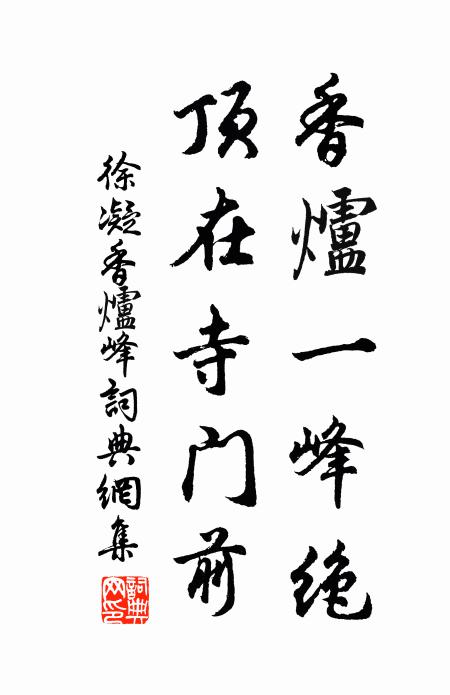 香爐一峰絶
頂在寺门前
徐凝香爐峰詞典網集
詞典网印